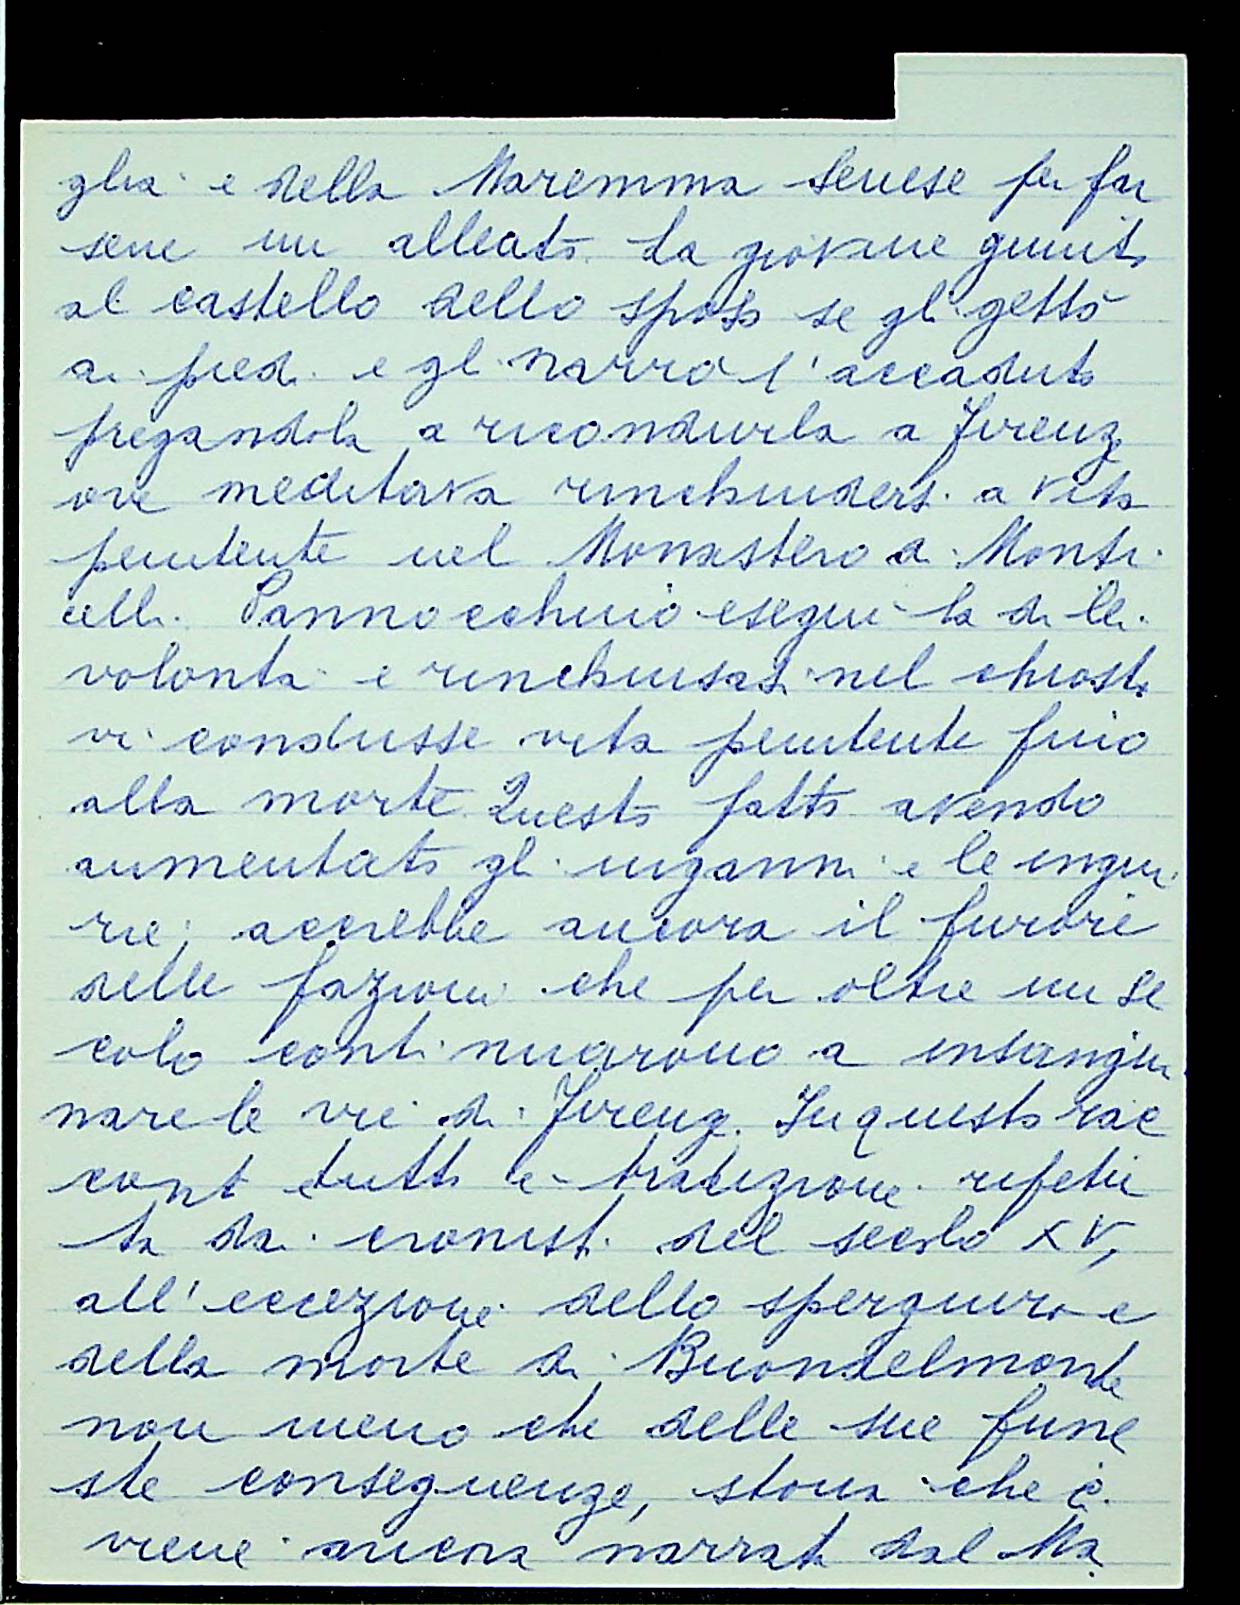 glia e della Maremma Senese per far
sene un alleato. La giovane giunta
al castello dello sposo se gli gettò
ai piedi e gli narrò l'accaduto
pregandola a ricondurla a Firenze
ove meditava rinchiudersi a vita
penitente nel Monastero di Monti
celli. Pannocchino eseguì la di lei
volontà e rinchiusasi nel chiostro
vi condusse vita penitente fino
alla morte. Questo fatto avendo
aumentato gli inganni e le ingiu
rie; accrebbe ancora il furore
delle fazioni che per oltre un se
colo continuarono a insangui
nare le vie di Firenze. In questo rac
conto tutto è tradizione ripetu
ta dai cronisti del secolo XV,
all'eccezione dello spergiuro e
della morte di Buondelmonte
non meno che delle sue fune
ste conseguenze, storia che ci
viene ancora narrata dal Ma